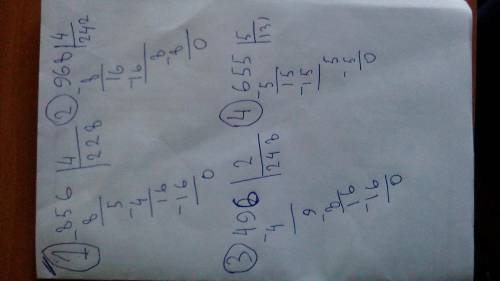 1 -856 4
8 228
5
-4
16
-16
0
2 968 4
-8 242
16
-16
8
-8
0
3 496 2
-4 248
9
-8
16
-16
0
4 655 5
-5 131
15
-15
5
-5
0